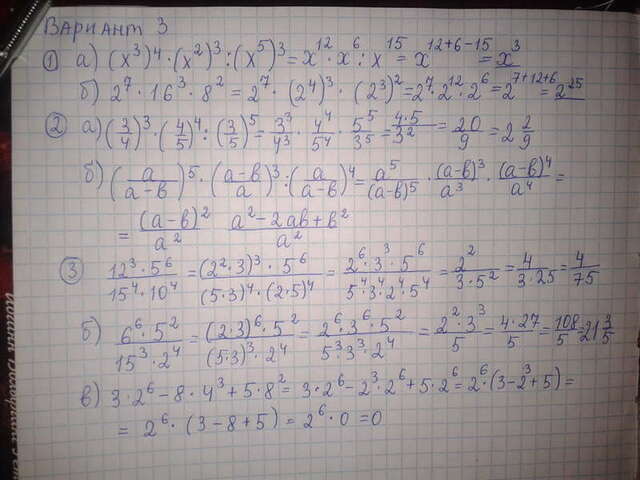 Вариант 3
① а) (x³)⁴ · (x²)³ : (x⁵)³ = x¹² · x⁶ : x¹⁵ = x¹²⁺⁶⁻¹⁵ = x³
б) 2⁷ · 16³ · 8² = 2⁷ · (2⁴)³ · (2³)² = 2⁷ · 2¹² · 2⁶ = 2⁷⁺¹²⁺⁶ = 2²⁵
② а) (3/4)³ · (4/5)⁴ : (3/5)⁵ = 3³/4³ · 4⁴/5⁴ · 5⁵/3⁵ = 4·5/3² = 20/9 = 2 2/9
б) (a/(a-в))⁵ · ((a-в)/a)³ : (a/(a-в))⁴ = a⁵/(a-в)⁵ · (a-в)³/a³ · (a-в)⁴/a⁴ =
= (a-в)²/a² a²-2aв+в²/a²
③ 12³·5⁶/15⁴·10⁴ = (2²·3)³·5⁶/(5·3)⁴·(2·5)⁴ = 2⁶·3³·5⁶/5⁴·3⁴·2⁴·5⁴ = 2²/3·5² = 4/3·25 = 4/75
б) 6⁶·5²/15³·2⁴ = (2·3)⁶·5²/(5·3)³·2⁴ = 2⁶·3⁶·5²/5³·3³·2⁴ = 2²·3³/5 = 4·27/5 = 108/5 = 21 3/5
в) 3·2⁶ - 8·4³ + 5·8² = 3·2⁶ - 2³·2⁶ + 5·2⁶ = 2⁶·(3-2³+5) =
= 2⁶·(3-8+5) = 2⁶·0 = 0